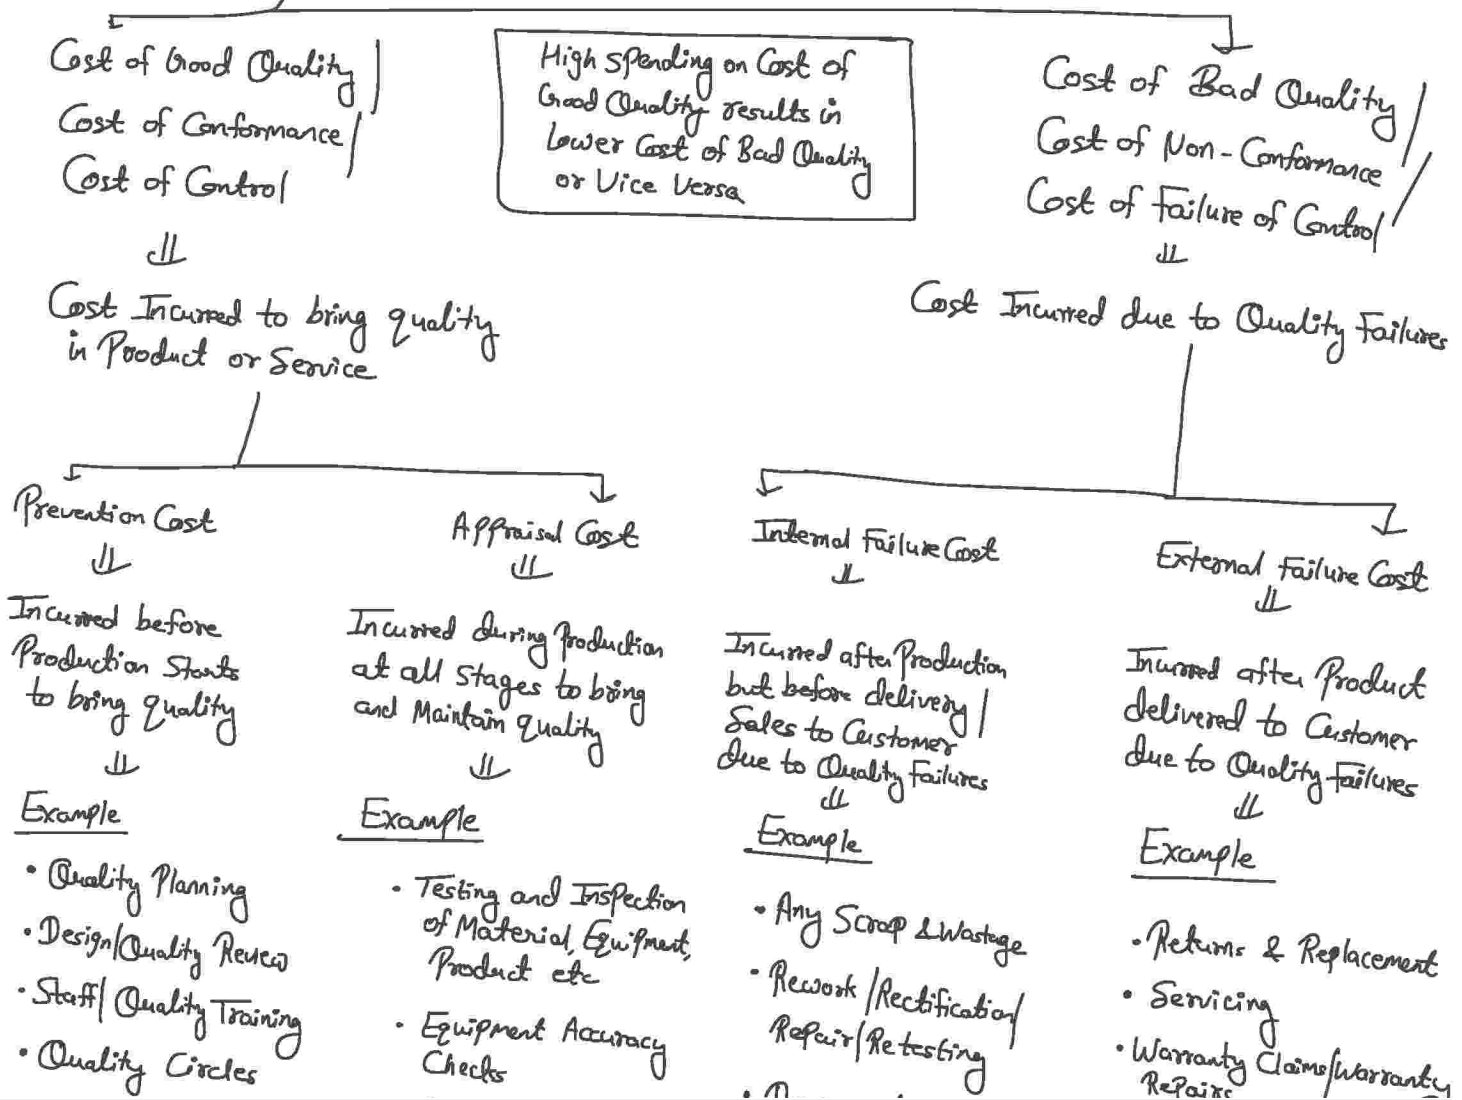 Cost of Good Quality/
Cost of Conformance/
Cost of Control
⇓
Cost Incurred to bring quality
in Product or Service
High Spending on Cost of
Good Quality results in
Lower Cost of Bad Quality
or Vice Versa
Cost of Bad Quality/
Cost of Non-Conformance/
Cost of Failure of Control
⇓
Cost Incurred due to Quality Failures
Prevention Cost
⇓
Incurred before
Production Starts
to bring quality
⇓
Example
• Quality Planning
• Design/Quality Review
• Staff/Quality Training
• Quality Circles
Appraisal Cost
⇓
Incurred during Production
at all stages to bring
and Maintain quality
⇓
Example
• Testing and Inspection
of Material, Equipment,
Product etc
• Equipment Accuracy
Checks
Internal Failure Cost
⇓
Incurred after Production
but before delivery/
Sales to Customer
due to Quality Failures
⇓
Example
• Any Scrap & Wastage
• Rework/Rectification/
Repair/Retesting
External Failure Cost
⇓
Incurred after Product
delivered to Customer
due to Quality Failures
⇓
Example
• Returns & Replacement
• Servicing
• Warranty Claims/Warranty
Repairs